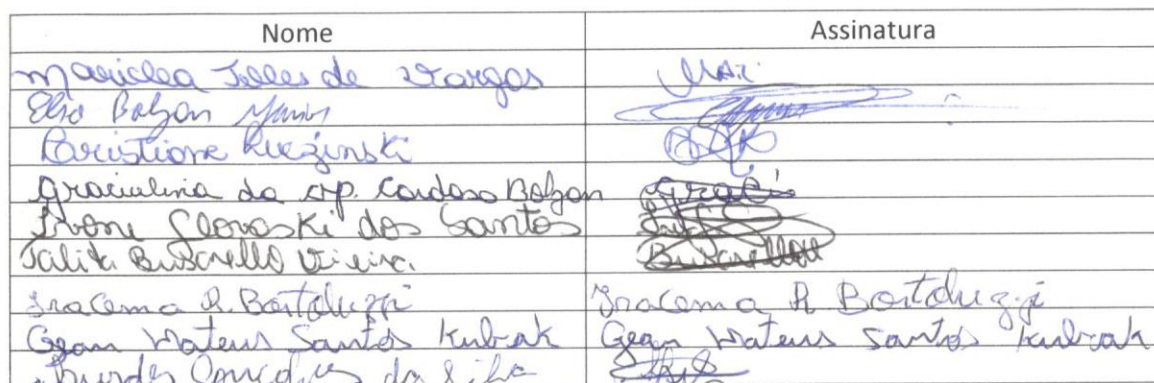 Nome Assinatura
Mariclea Telles de Vargas Mari
Elso Bolzon
Cristione Ruczinski
Gracialina da Ap. Cardoso Bolzon Graci
Ivone Slovoski dos Santos
Talita Busarello Vieira Busarello
Iracema R. Bortoluzzi Iracema R Bortoluzzi
Gean Mateus Santos Kubrak Gean Mateus Santos Kubrak
Lourdes da Silva